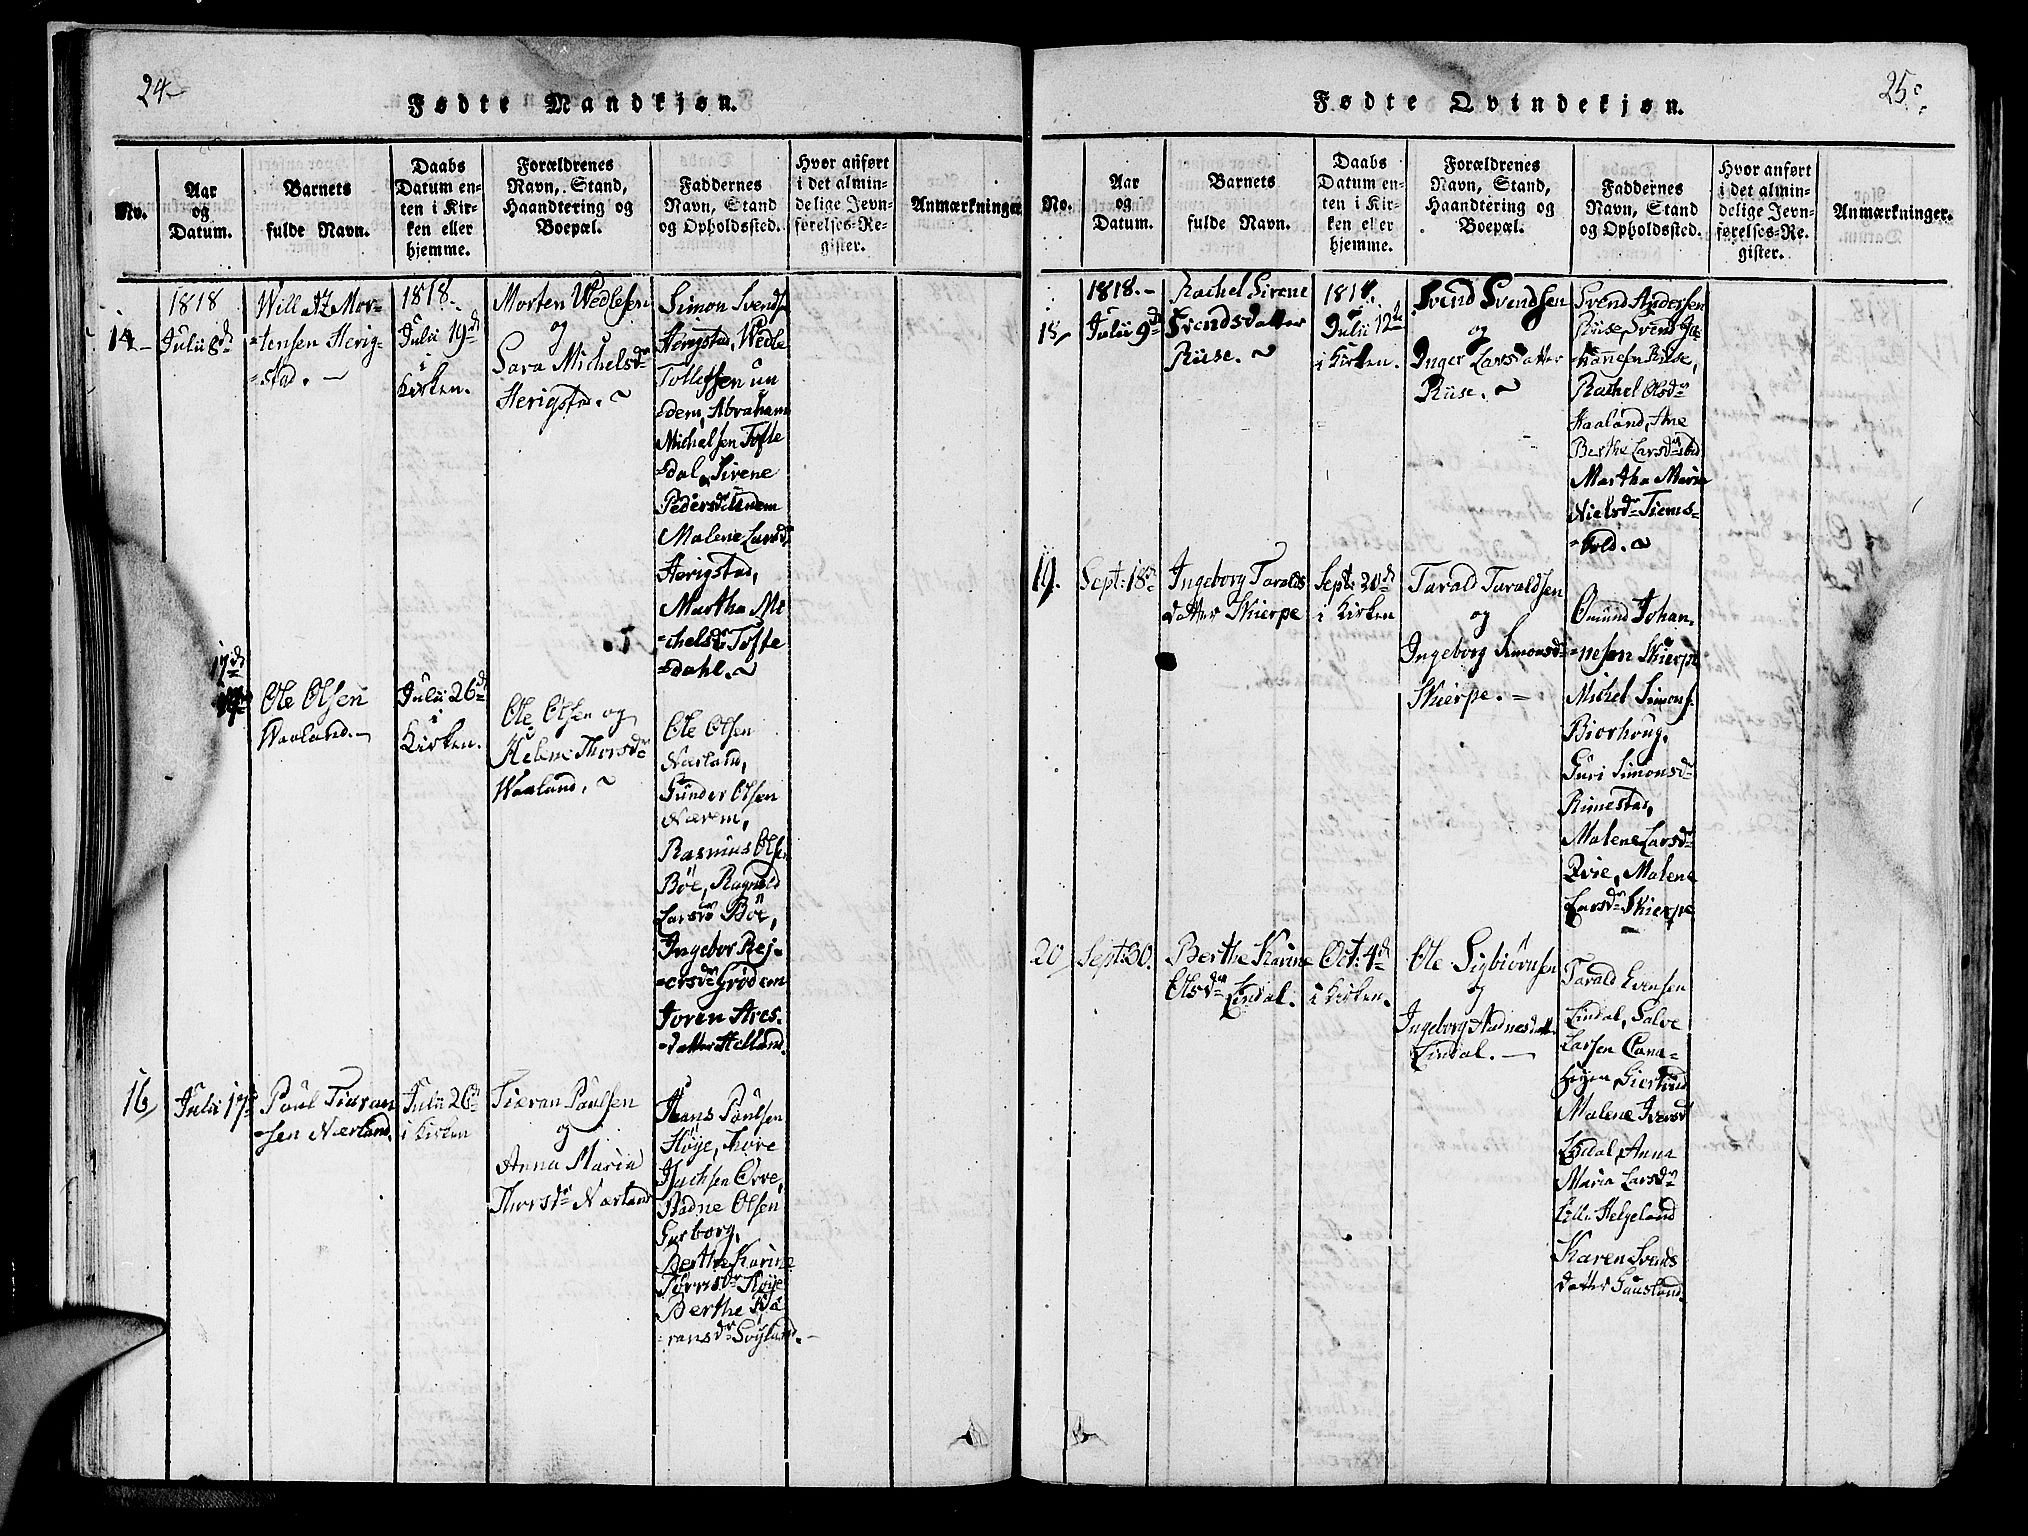 24
Fødte Mandkjøn.
No.
Aar
og
Datum.
Barnets
fulde Navn.
Daabs
Datum en-
ten i Kir-
ken eller
hjemme.
Forældrenes
Navn, Stand,
Haandtering og
Boepæl.
Faddernes
Navn, Stand
og Opholdssted.
Hvor anført
i det almin-
delige Jevn-
førelses-Re-
gister.
Anmærkninger
14
1818
Julii 8de
Mor-
tensen Herig-
stad.
1818.
Julii 19de
i
Kirken.
Morten Wedlesen
og
Sara Michelsdr
Herigstad.
Simon Svends
Herigstad, Wedle
Tollefsen un
dem, Abraham
Michelsen Tofte
dal, Sirene
Pedersdr Undem
Malene Larsdr
Herigstad,
Martha Mi
chelsdr Tofte
dahl.
17de
Ole Olsen
Waaland.
Julii 26de
i
Kirken.
Ole Olsen og
Helene Thorsdr
Waaland.
Ole Olsen
Nærland,
Gunder Olsen
Nærem,
Rasmus Olsen
Böe, Ragnild
Larsdr Böe,
Ingebor Rej-
ersdr Grödem
Joren Ares-
datter Helland.
16
Julii 17de
Paul Tiæran
sen Nærland.
Julii 26de
i Kirken
Tiæran Paulsen
og
Anna Maria
Thorsdr Nærland
Hans Paulsen
Høye, Thore
Jachsen Orre,
Aadne Olsen
Gusborg,
Berthe Karine
Tørrisdr Høye
Berthe Kiæ
ransdr Søyland.
25
Fødte Qvindekjøn.
No.
Aar
og
Datum.
Barnets
fulde Navn.
Daabs
Datum en-
ten i Kir-
ken eller
hjemme.
Forældrenes
Navn, Stand,
Haandtering og
Boepæl.
Faddernes
Navn, Stand
og Opholdssted.
Hvor anført
i det almin-
delige Jevn-
førelses-Re-
gister.
Anmærkninger.
18
1818.
Julii 9de
Rachel Sirene
Svendsdatter
Riise.
1818.
Julii 12de
i Kirken.
Svend Svendsen
og
Inger Larsdatter
Riise.
Svend Andersen
Riise, Svend Jo-
hannesen Riise,
Rachel Olsdr
Haaland, Ane
Berthe Larsdr ibid
Martha Marie
Nielsdr Tiems-
vold.
19.
Sept: 18de
Ingeborg Taralds
datter Skierpe
Sept: 20de
i Kirken
Tarald Taraldsen
og
Ingeborg Simonsdr
Skierpe.
Omund Johan-
nesen Skierpe
Michel Simons.
Biorhoug,
Guri Simonsdr
Rimestad,
Malene Larsdr
Qvie, Malene
Larsdr Skierpe
20
Sept: 30.
Berthe Karine
Olsdr Lindal.
Oct: 4de
i Kirken.
Ole Sigbiörnsen
og
Ingeborg Aadnesdatt.
Lindal.
Tarald Evensen
Lindal, Salve
Larsen
Malene Iversdr
Lindal, Anna
Maria Larsdr
Lille Helgeland
Karen Svends
datter Gausland.